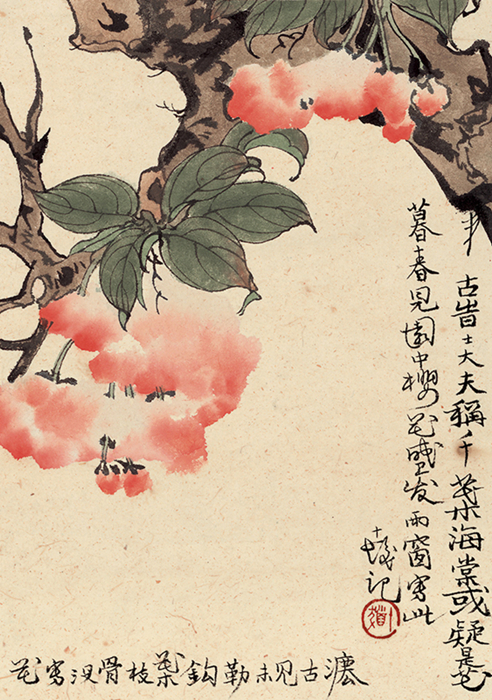 古昔士大夫稱千葉海棠或疑是
暮春見園中櫻花盛发雨窗寫此
記
花寫没骨枝葉鈎勒未见古灋